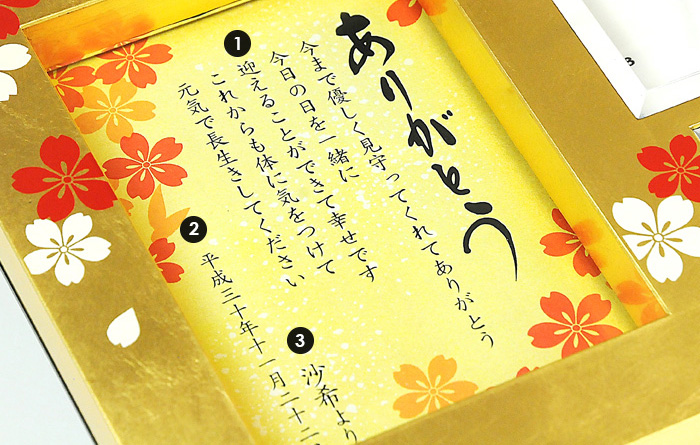 ありがとう
今まで優しく見守ってくれてありがとう
今日の日を一緒に
迎えることができて幸せです
これからも体に気をつけて
元気で長生きしてください
平成三十年十一月二十二
沙希より
1
2
3
3